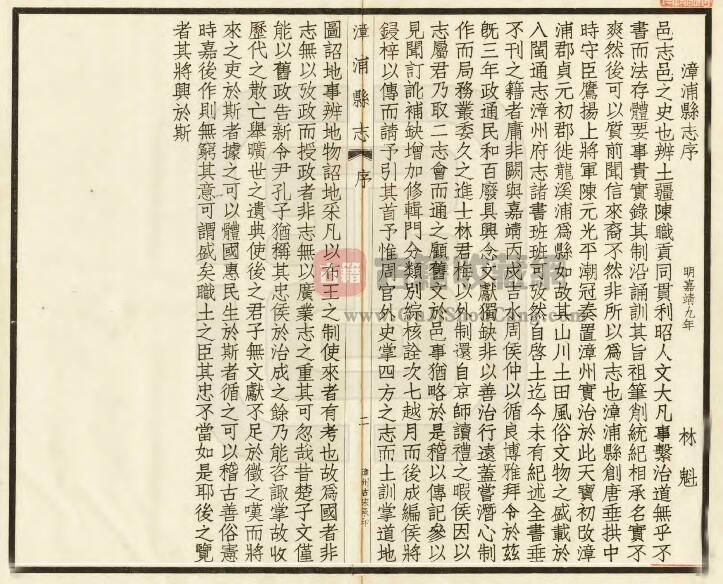 漳浦縣志序
明嘉靖九年 林魁
邑志邑之史也辨土疆陳職貢同貫利昭人文大凡事繫治道無乎不
書而法存體要事貴實錄其制㳂誦訓其旨祖筆削統紀相承名實不
爽然後可以質前聞信來裔不然非所以爲志也漳浦縣創唐垂拱中
時守臣鷹揚上將軍陳元光平潮冠奏置漳州實治於此天寶初改漳
浦郡貞元初郡徙龍溪浦爲縣如故其山川土田風俗文物之盛載於
入閩通志漳州府志諸書班班可攷然自啓土迄今未有紀述全書垂
不刊之籍者庸非闕與嘉靖丙戌吉水周侯仲以循良博雅拜令於兹
旣三年政通民和百廢具興念文獻獨缺非以善治行遠蓋嘗潛心制
作而局務叢委久之進士林君梅以外制還自京師讀禮之暇侯因以
志屬君乃取二志會而通之顧舊文於邑事猶略於是稽以傳記參以
見聞訂訛補缺增加修輯門分類別綜核詮次七越月而後成編侯將
鋟梓以傳而請予引其首予惟周官外史掌四方之志而土訓掌道地
漳浦縣志 序 二
圖詔地事辨地物詔地采凡以布王之制使來者有考也故爲國者非
志無以攷政而授政者非志無以廣業志之重其可忽哉昔楚子文僅
能以舊政告新令尹孔子猶稱其忠侯於治成之餘乃能咨諏掌故收
歷代之散亡舉曠世之遺典使後之君子無文獻不足於徵之嘆而將
來之吏於斯者據之可以體國惠民生於斯者循之可以稽古善俗憲
時嘉後作則無窮其意可謂盛矣職土之臣其忠不當如是耶後之覽
者其將興於斯